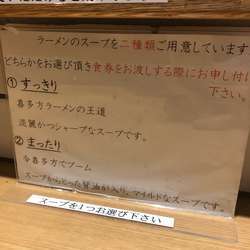 ラーメンのスープを二種類ご用意しています
どちらかをお選び頂き食券をお渡しする際にお申し付け
下さい。
① すっきり
喜多方ラーメンの王道
淡麗かつシャープなスープです。
② まったり
今喜多方でブーム
スープからとった醤油が入り、マイルドなスープです。
スープを1つお選び下さい